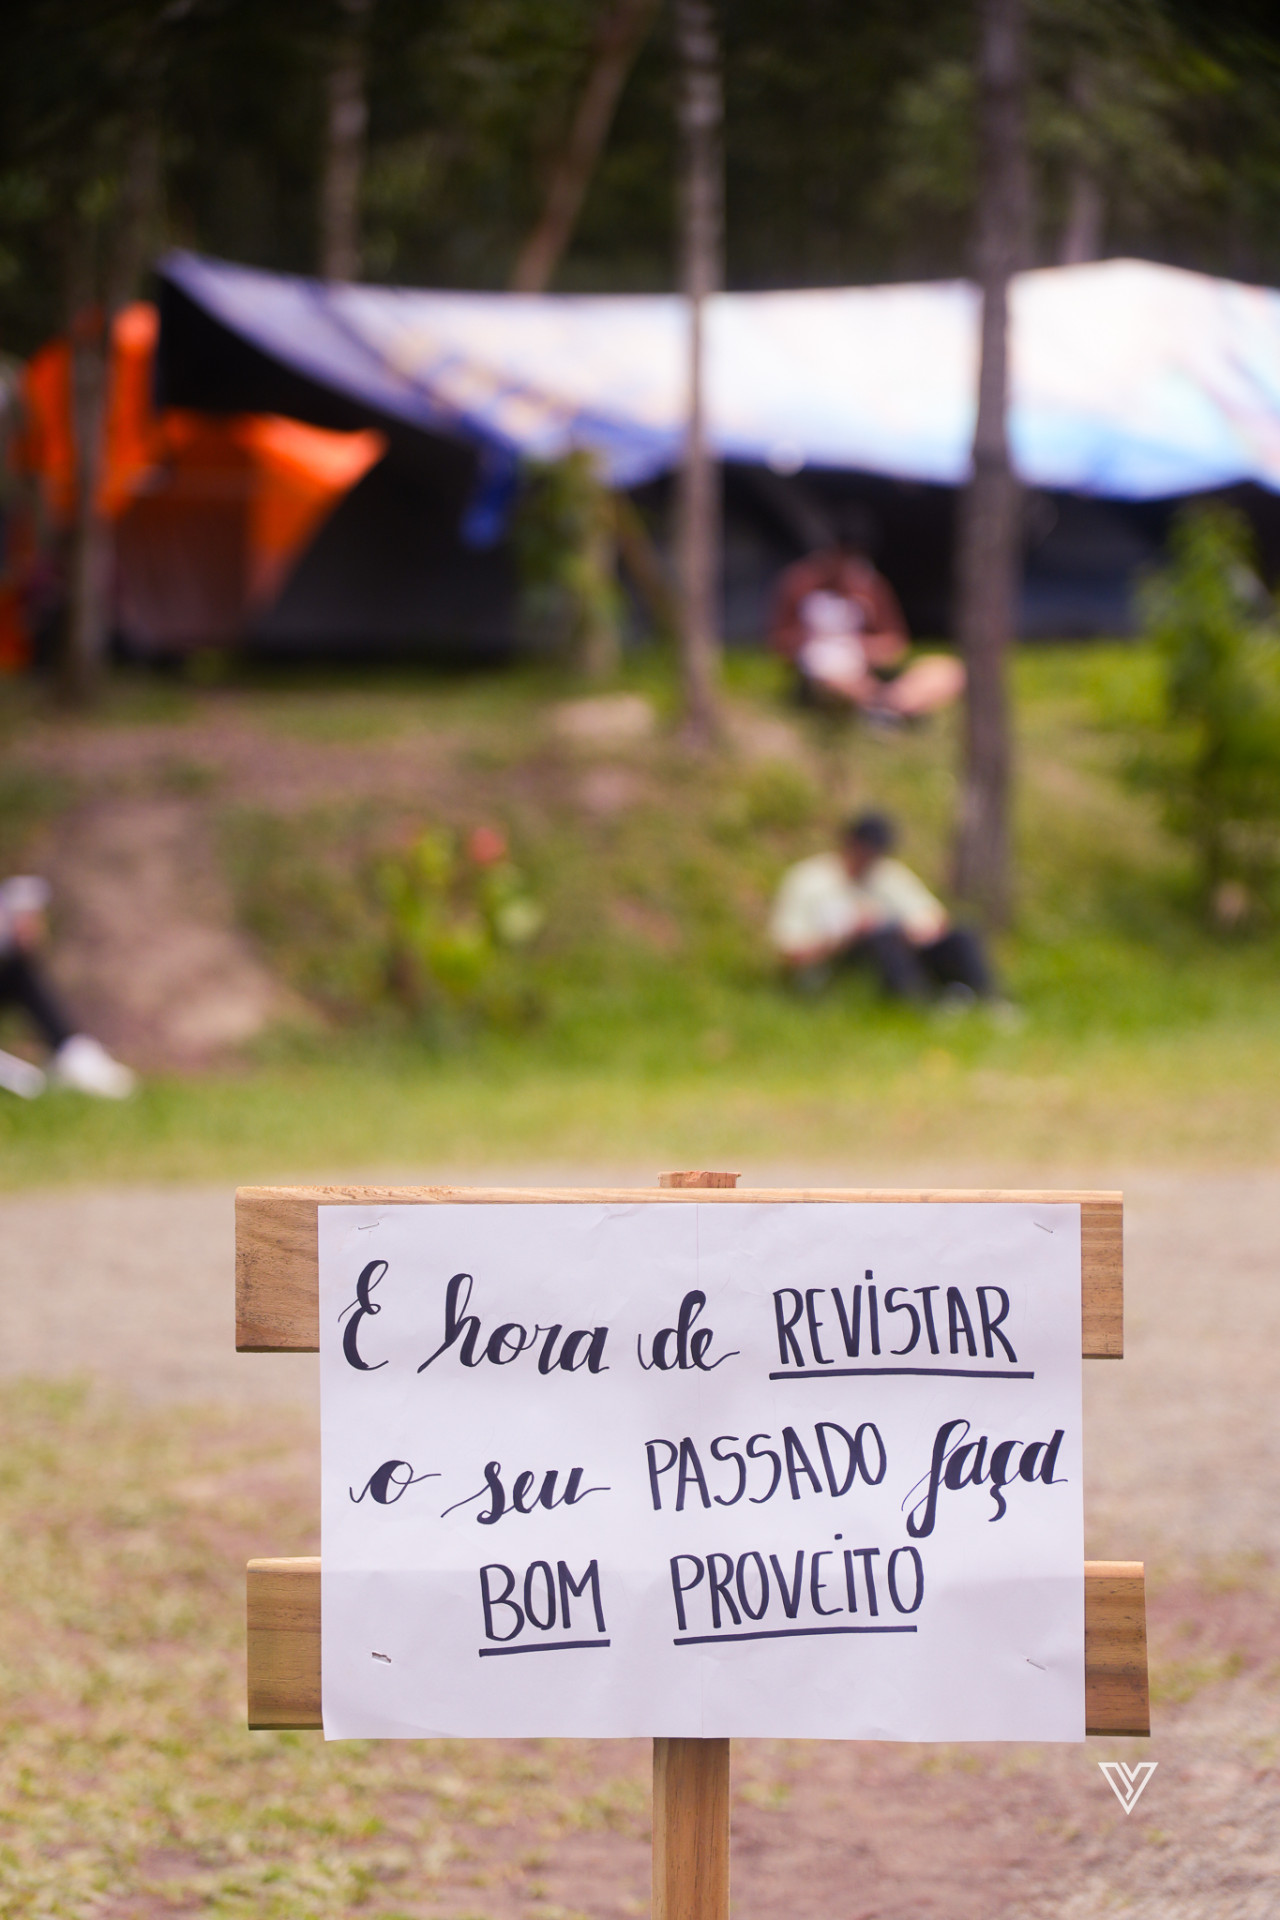 É hora de REVISTAR
o seu PASSADO faça
BOM PROVEITO